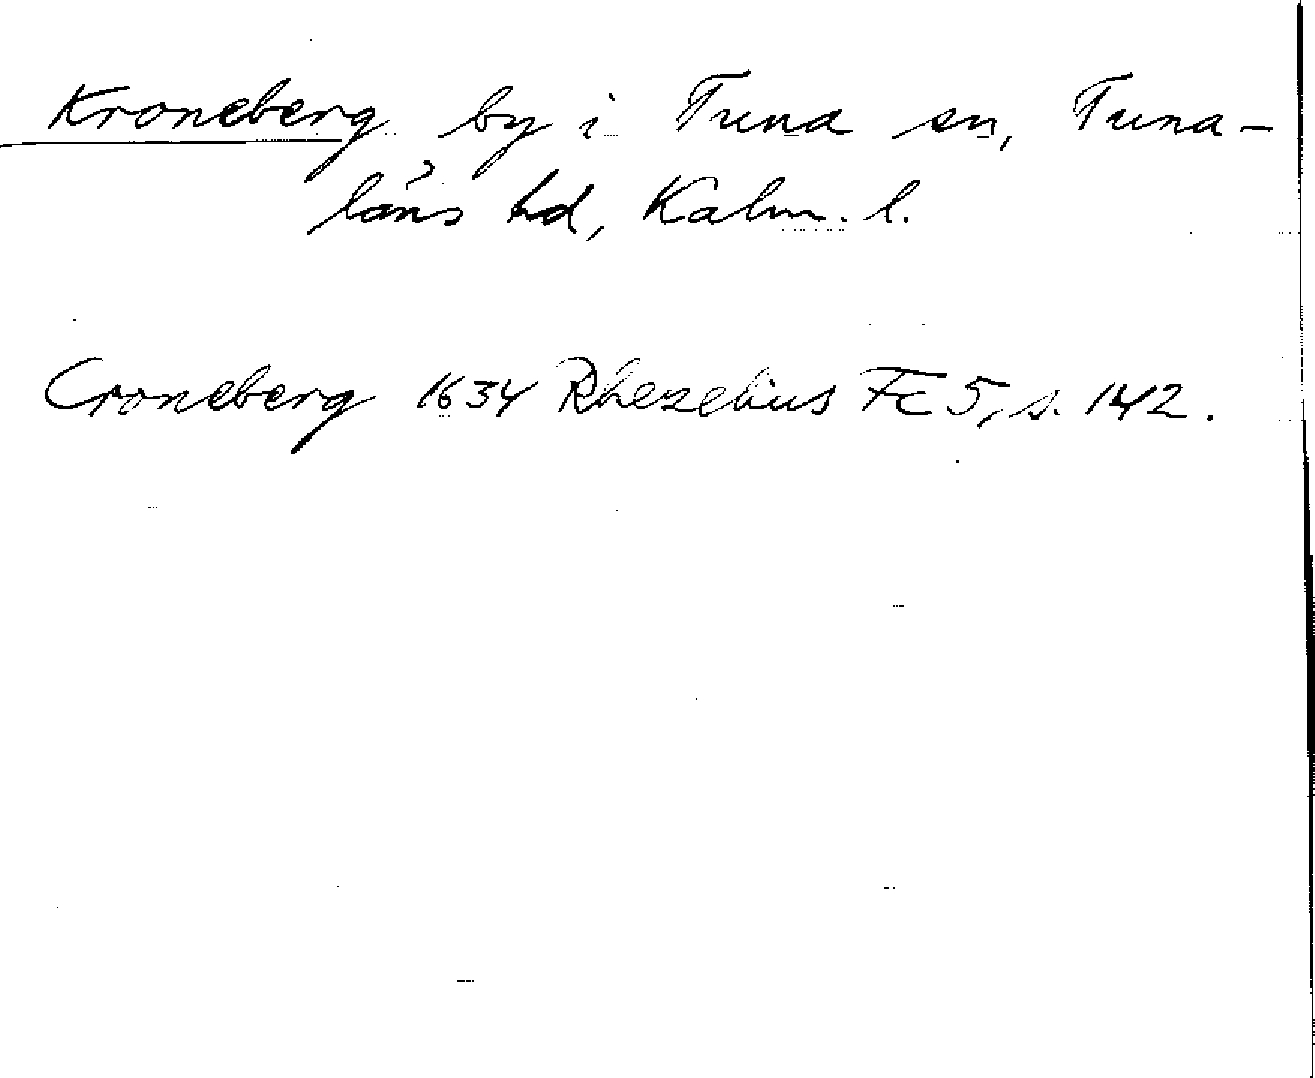 Kroneberg by i Tuna sn, Tuna-
läns hd, Kalm. l.
Croneberg 1634 Rhezelius Fc 5, s. 142.